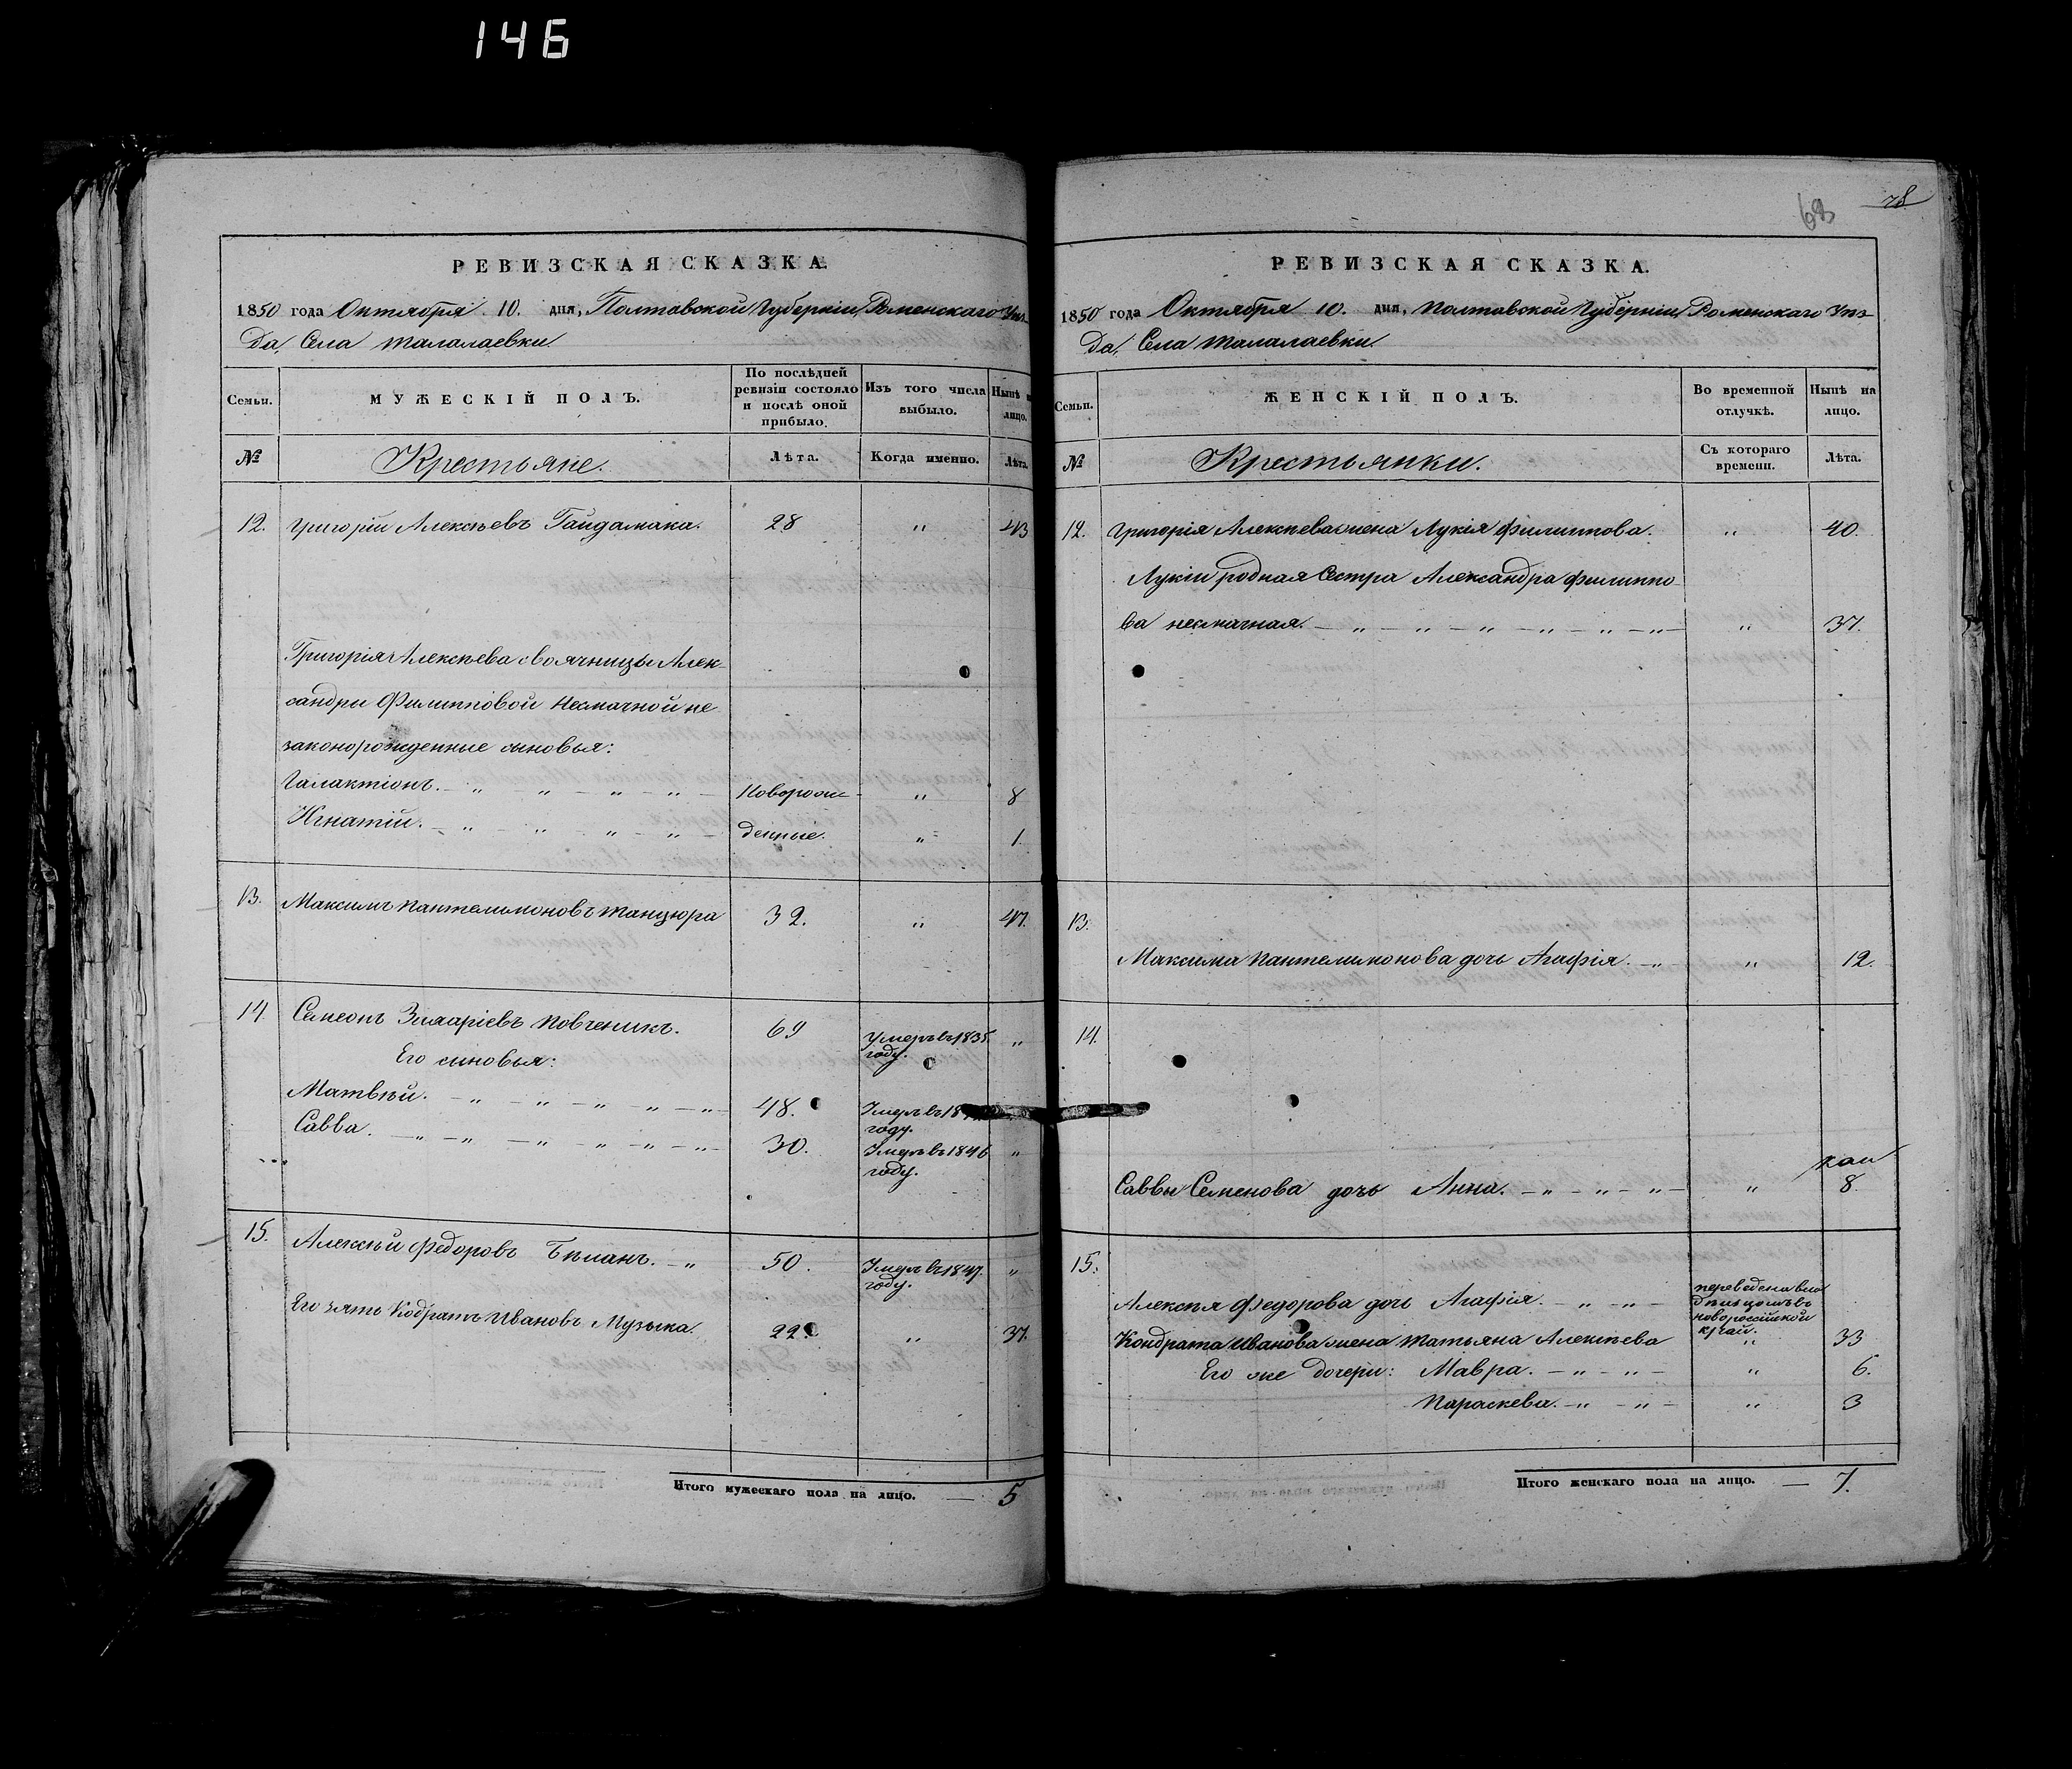 146
68
78
РЕВИЗСКАЯ СКАЗКА.
1850 года Октября 10. дня, Полтавской Губерніи Роменскаго Уѣз-
да, Села Талалаевки.
Семьи.
МУЖЕСКІЙ ПОЛЪ.
По послѣдней ревизіи состояло и послѣ оной прибыло.
Изъ того числа выбыло.
Нынѣ на лицо.
№
Крестьяне.
Лѣта.
Когда именно.
Лѣта.
12. Григорій Алексѣевъ Гайдамака. 28 " 43
Григорія Алексѣева своячницы Алек-
сандры Филипповой Несмачной не
законорожденные сыновья:
Галактіонъ. — " — " — " — " — Новорож- " 8
Игнатій. — " — " — " — " — денные. " 1.
13. Максимъ Пантелимоновъ Танцюра 32. " 47.
14 Семеонъ Повченикъ. 69 Умеръ въ 1835. году. "
Его сыновья:
Матвѣй. — " — " — " — " — " 48. Умеръ въ году.
Савва. — " — " — " — " — " — " — 30. Умеръ въ 1846 году. "
15. Алексѣй Федоровъ Бѣланъ. — " 50. Умеръ въ 1847. году. "
Его зять Кодратъ Ивановъ Музыка. 22 " 37
Итого мужескаго пола на лицо. — 5
РЕВИЗСКАЯ СКАЗКА.
1850 года Октября 10. дня, Полтавской Губерніи Роменскаго Уѣз-
да, Села Талалаевки.
Семьи.
ЖЕНСКІЙ ПОЛЪ.
Во временной отлучкѣ.
Нынѣ на лицо.
№
Крестьянки.
Съ котораго времени.
Лѣта.
12. Григорія Алексѣева жена Лукія Филиппова. " 40.
Лукіи родная сестра Александра Филиппо
ва Несмачная. — " — " — " — " — " — " — " 37.
13.
Максима Пантелимонова дочь Агафія. — " " 12.
14.
Саввы Семенова дочь Анна. — " — " — " — " 8.
15.
Алексѣя Федорова дочь Агафія. — " — " — переведена въ новороссійской край.
Кондрата Иванова жена Татьяна Алексѣева " 33
Его же дочери: Мавра. — " — " — " 6.
Параскева. — " — " — " 3
Итого женскаго пола на лицо. — 7.